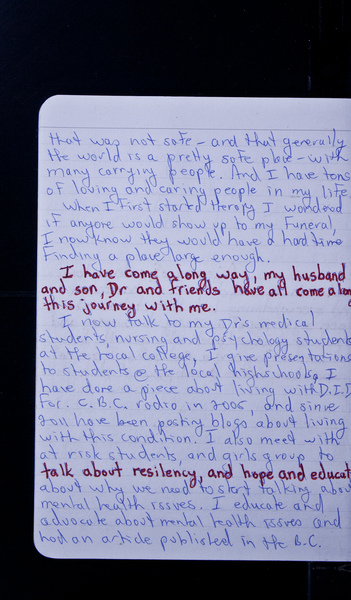 that was not safe - and that generally
the world is a pretty safe place - with
many carrying people. And I have tons
of loving and caring people in my life
When I first started therapy I wondered
if anyone would show up to my Funeral,
I now know they would have a hard time
Finding a place large enough.
I have come along way, my husband
and son, Dr and friends have all come along
this journey with me.
I now talk to my Dr's medical
students, nursing and psychology students
at the local college, I give presentations
to students @ the local highschools, I
have done a piece about living with D.I.D
For C.B.C. radio in 2005, and since
2011 have been posting blogs about living
with this condition. I also meet with
at risk students, and girls group to
talk about resilency, and hope and educate
about why we need to start talking about
mental health issues. I educate and
advocate about mental health issues and
had an article published in the B.C.